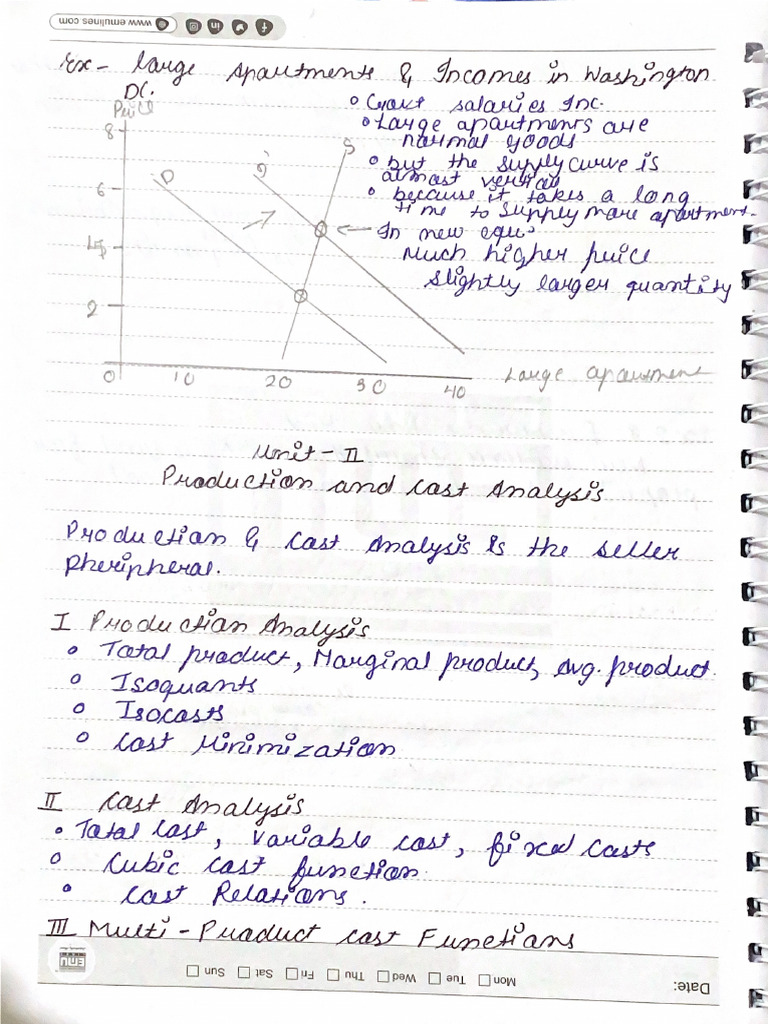 www.emulines.com
Ex- Large Apartments & Incomes in Washington
DC.
Price
8
6
4
2
0
10
20
30
40
D
D'
S
Large apartment
• Govt salaries Inc.
• Large apartments are
normal goods
• but the supply curve is
almost vertical
• because it takes a long
time to supply more apartment.
In new equi
Much higher price
slightly larger quantity
Unit - II
Production and Cost Analysis
Production & Cost Analysis is the seller
pheripheral.
I Production Analysis
• Total product, Marginal product, Avg. product.
• Isoquants
• Isocosts
• Cost Minimization
II Cost Analysis
• Total Cost, Variable cost, fixed costs
• Cubic cost function.
• Cost Relations.
III Multi - Product cost Functions
EMU
Date:
Mon Tue Wed Thu Fri Sat Sun